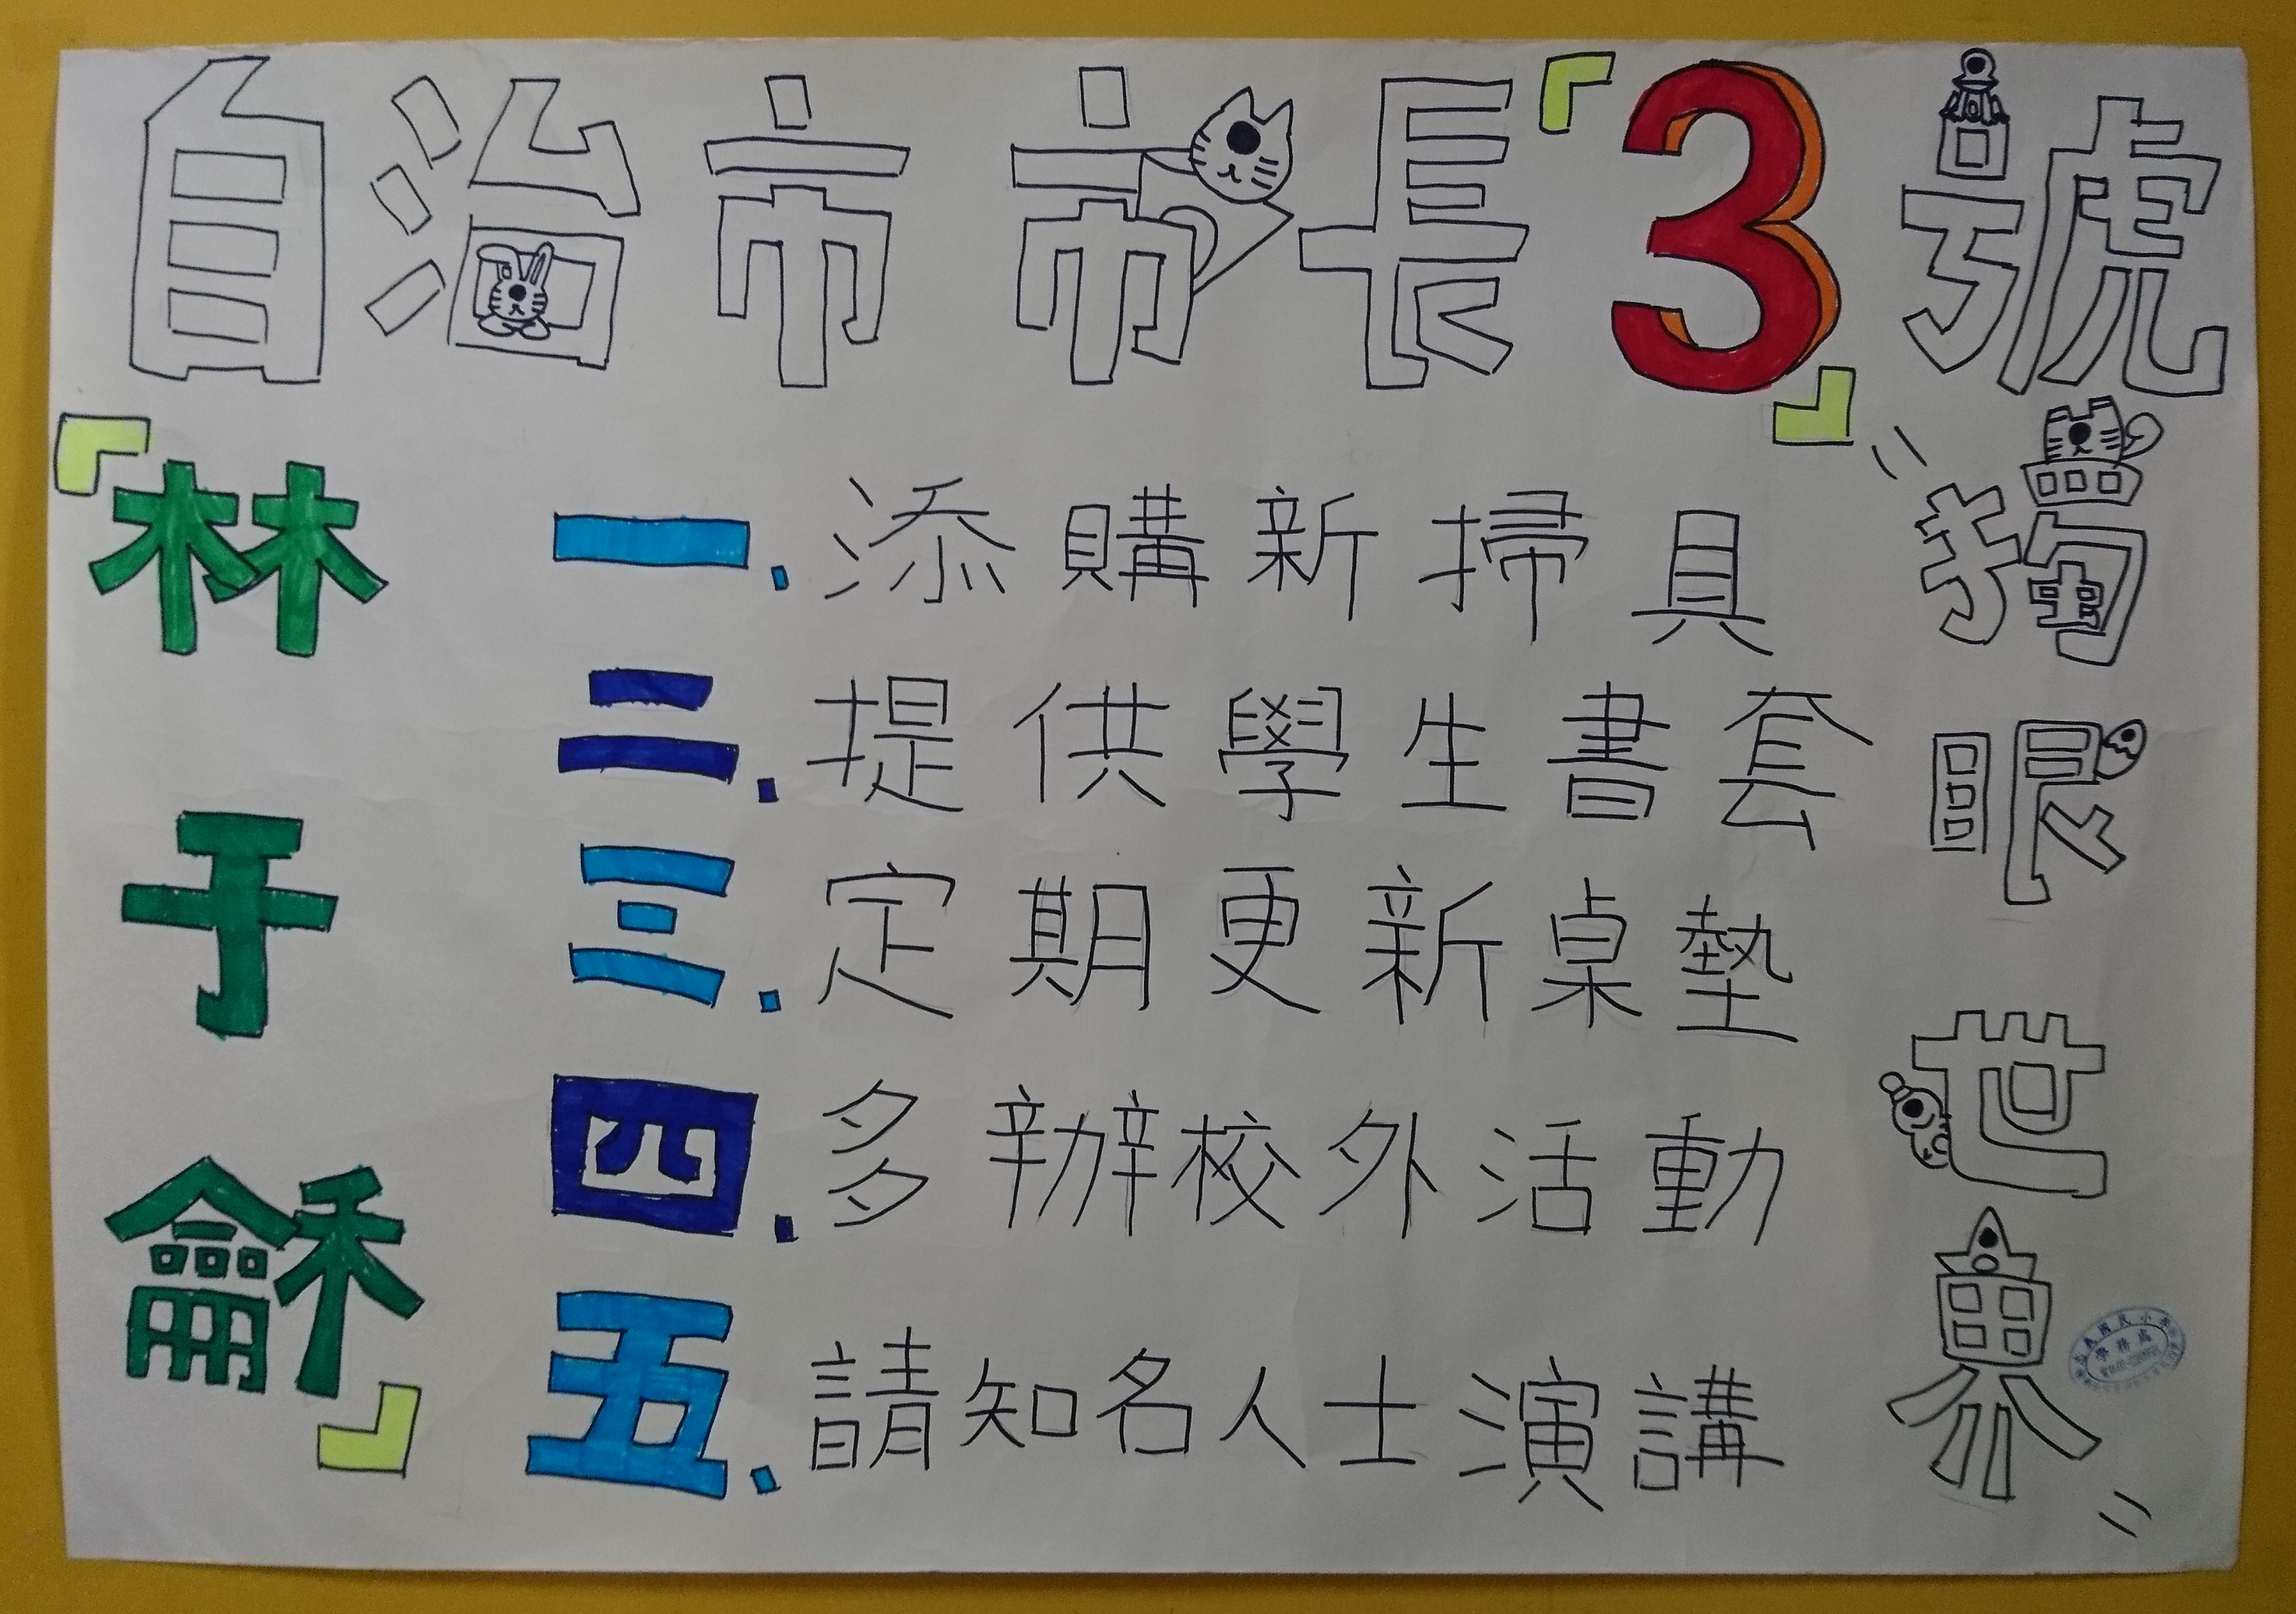 自治市市長『3』號
『林于龢』
一.添購新掃具
二.提供學生書套
三.定期更新桌墊
四.多辦校外活動
五.請知名人士演講
〝獨眼世界〞
國民小學
學務處